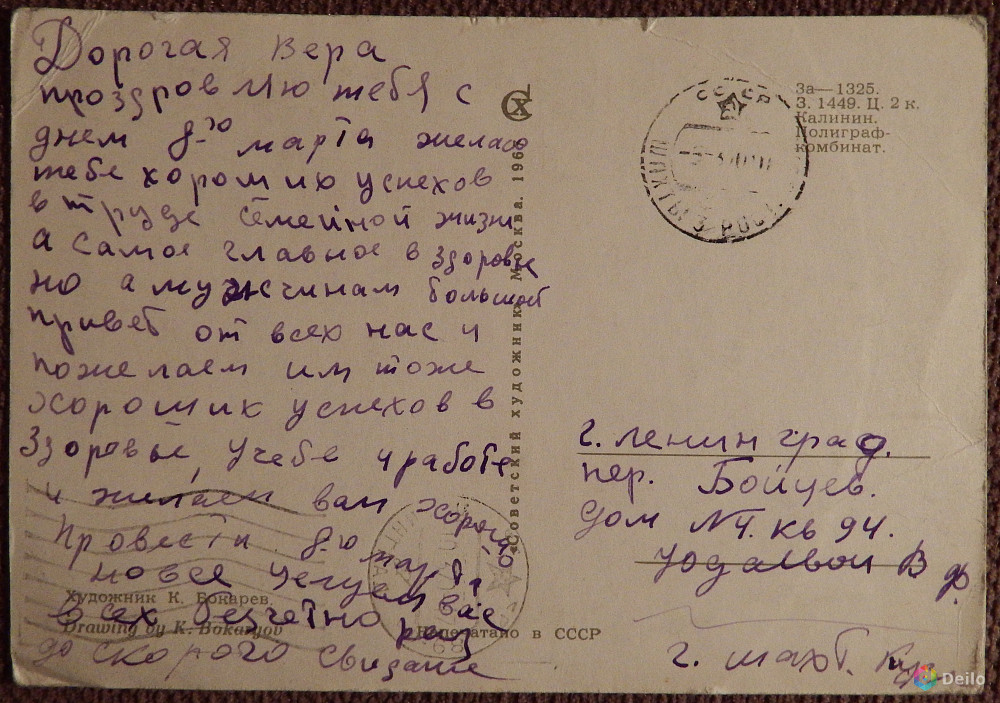 Дорогая Вера
проздровляю тебя с
днем 8-ю марта желаю
тебе хороших успехов
в труде семейной жизни
а самое главное в здоровье
но а мужчинам большой
привет от всех нас и
пожелаем им тоже
хороших успехов в
здоровье, учебе и работе
и желаем вам хорошо
Провести 8-ю марта
целуем вас
всех безчетно раз
до скорого свидание
Художник К. Бокарев.
Drawing by K. Bokaryov
Напечатано в СССР
«Советский художник». Москва. 196
За—1325.
З. 1449. Ц. 2 к.
Калинин.
Полиграф-
комбинат.
СССР
ШАХТЫ 3 РОСТ.
г. Ленинград.
пер. Бойцев.
Дом №4. кв 94.
В ф.
г. шахт.
Deilo